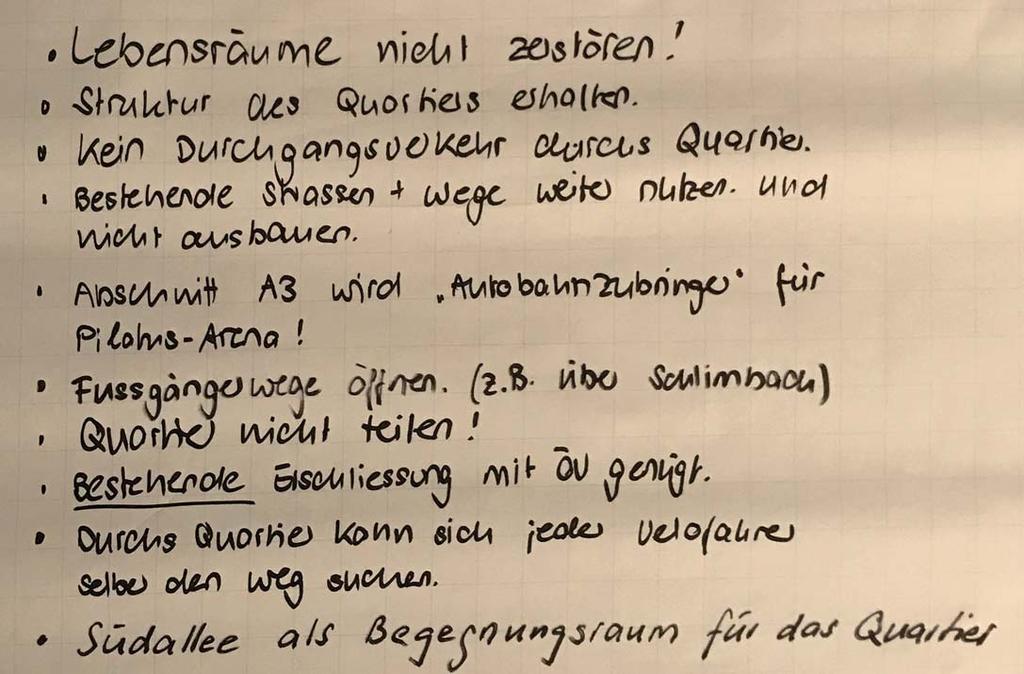 • Lebensräume nicht zerstören!
• Struktur des Quartiers erhalten.
• Kein Durchgangsverkehr durchs Quartier.
• Bestehende Strassen + Wege weiter nutzen. und
nicht ausbauen.
• Abschnitt A3 wird „Autobahnzubringer" für
Pilatus-Arena!
• Fussgängerwege öffnen. (z.B. über Schlimbach)
• Quartier nicht teilen!
• Bestehende Erschliessung mit ÖV genügt.
• Durchs Quartier kann sich jeder Velofahrer
selber den Weg suchen.
• Südallee als Begegnungsraum für das Quartier